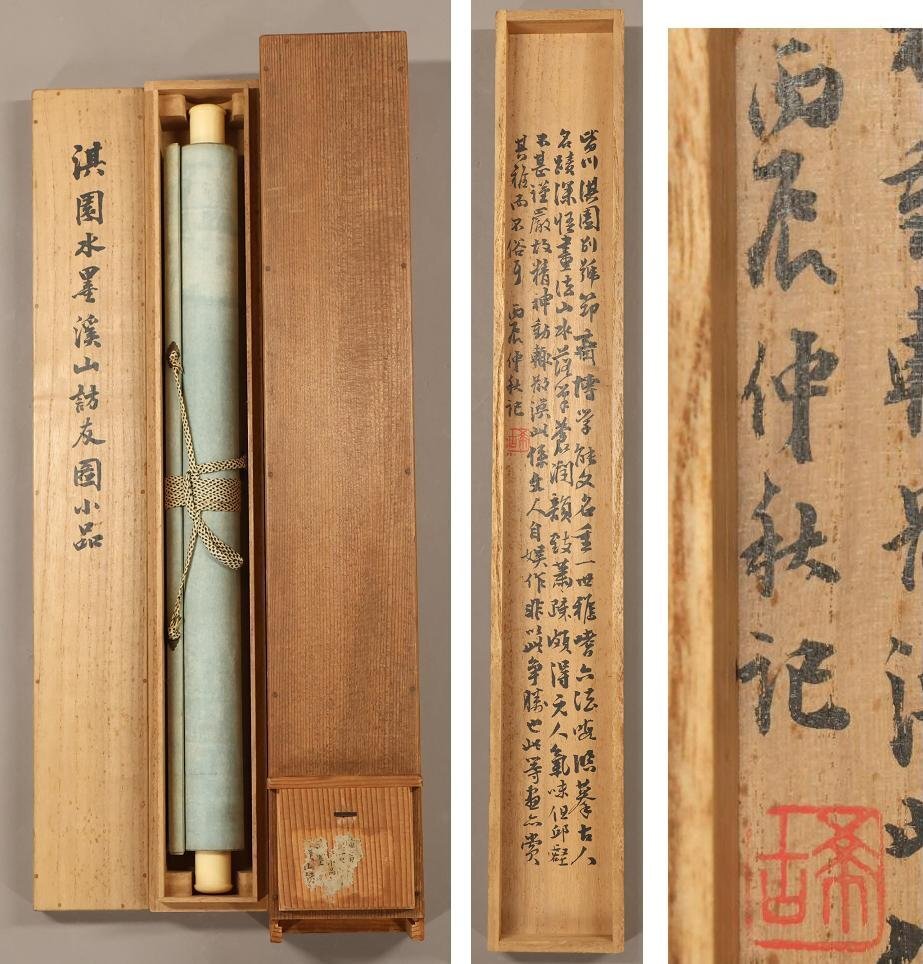 淇園水墨溪山訪友圖小品
皆川淇園別號節齋博学能文名重一世雅嗜六法臨摹古人
名蹟深悟畫法山水落筆蒼潤韻致蕭疎頗得元人氣味但邱壑
不甚謹嚴故精神動輒散漫此係文人自娛作非以此争勝也此等畫亦賞
其雅而不俗耳 丙辰仲秋記
希古
丙辰仲秋記
希古